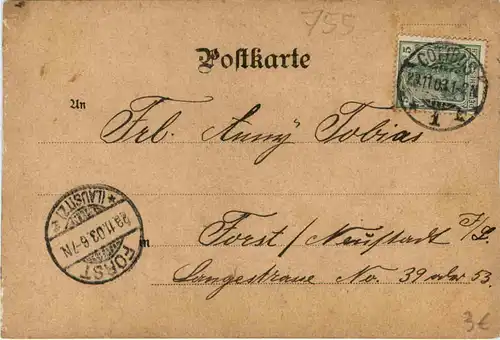 755
Postkarte
5
COTTBUS
29.11.03.1-2N
* 1 *
An
Frl. Anny Tobias
*(LAUSITZ)*
29.11.03.6-7N
FORST
in
Forst/Neustadt N/L.
Langestrasse No. 39 oder 53.
3€